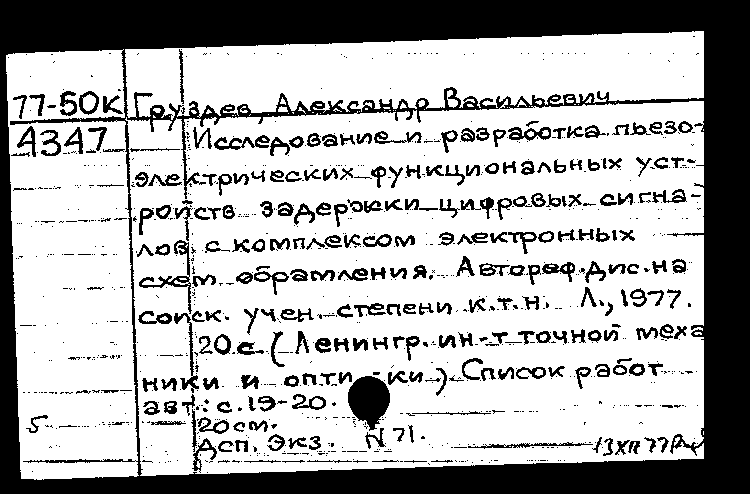 77-50к Груздев, Александр Васильевич
А347 Исследование и разработка пьезо-
электрических функциональных уст-
ройств задержки цифровых сигна-
лов с комплексом электронных
схем обрамления. Автореф.дис.на
соиск. учен. степени к.т.н. Л., 1977.
20 с. (Ленингр. ин-т точной меха
ники и опти ки). Список работ
авт.: с.19-20.
5 20 см.
Дсп. Экз. N 71. 13 XII 77